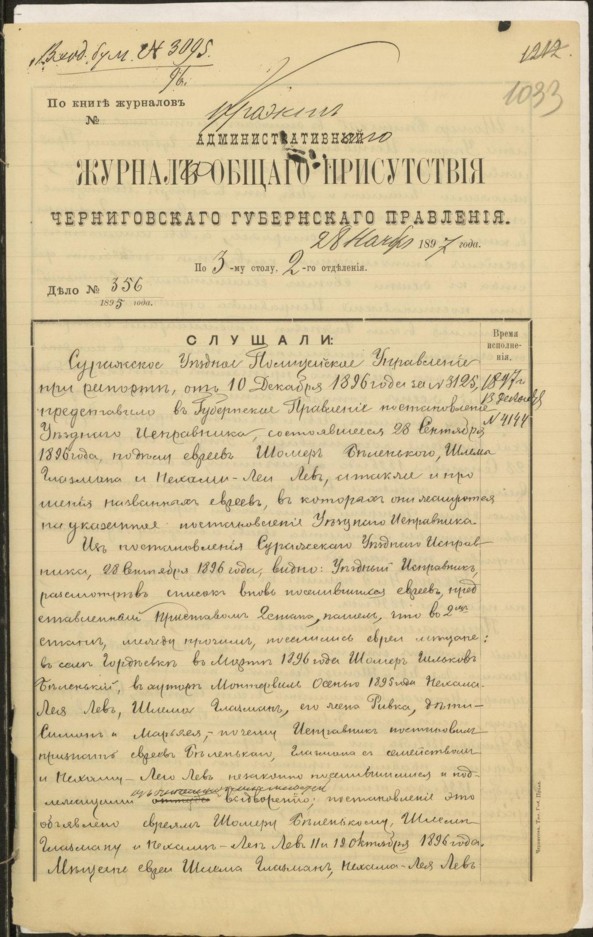 Вход. бум. № 3095.
96.
1212.
1033
По книгѣ журналовъ
№
АДМИНИСТРАТИВНАГО
ЖУРНАЛЪ ОБЩАГО ПРИСУТСТВІЯ
ЧЕРНИГОВСКАГО ГУБЕРНСКАГО ПРАВЛЕНІЯ.
28 Ноября 1897 года.
По 3-му столу, 2-го отдѣленія.
Дѣло № 356
1895 года.
СЛУШАЛИ:
Время исполненія.
Суражское Уѣздное Полицейское Управленіе
при рапортѣ, отъ 10 Декабря 1896 года за № 3125,
1897 г.
представило въ Губернское Правленіе постановленіе
№ 4144
Уѣзднаго Исправника, состоявшееся 28 Сентября
1896 года, евреевъ Шомера Бѣленькаго, Шлема
Глазмана и Нехамы-Леи Левъ, а также и про-
шенія названныхъ евреевъ, въ которыхъ они жалуются
на указанное постановленіе Уѣзднаго Исправника.
Изъ постановленія Суражскаго Уѣзднаго Исправ-
ника, 28 Сентября 1896 года, видно: Уѣздный Исправникъ,
разсмотрѣвъ списокъ вновь поселившихся евреевъ, пред
ставленный Приставомъ 2 стана, нашелъ, что во 2мъ
станѣ, между прочимъ, поселились евреи мѣщане:
въ селѣ Гордѣевкѣ въ Мартѣ 1896 года Шомеръ Гильковъ
Бѣленькій, въ хуторѣ Осенью 1895 года Нехама-
Лея Левъ, Шлема Глазманъ, его жена Ривка, дѣти-
Симонъ и Марьяся,- почему Исправникъ постановилъ
признать евреевъ Бѣленькаго, Глазмана съ семействомъ
и Нехаму-Лею Левъ незаконно поселившимися и под-
лежащими постановленіе это
объявлено евреямъ Шомеру Бѣленькому, Шлемѣ
Глазману и Нехамѣ-Леѣ Левъ 11 и 12 Октября 1896 года.
Мѣщане евреи Шлема Глазманъ, Нехама-Лея Левъ